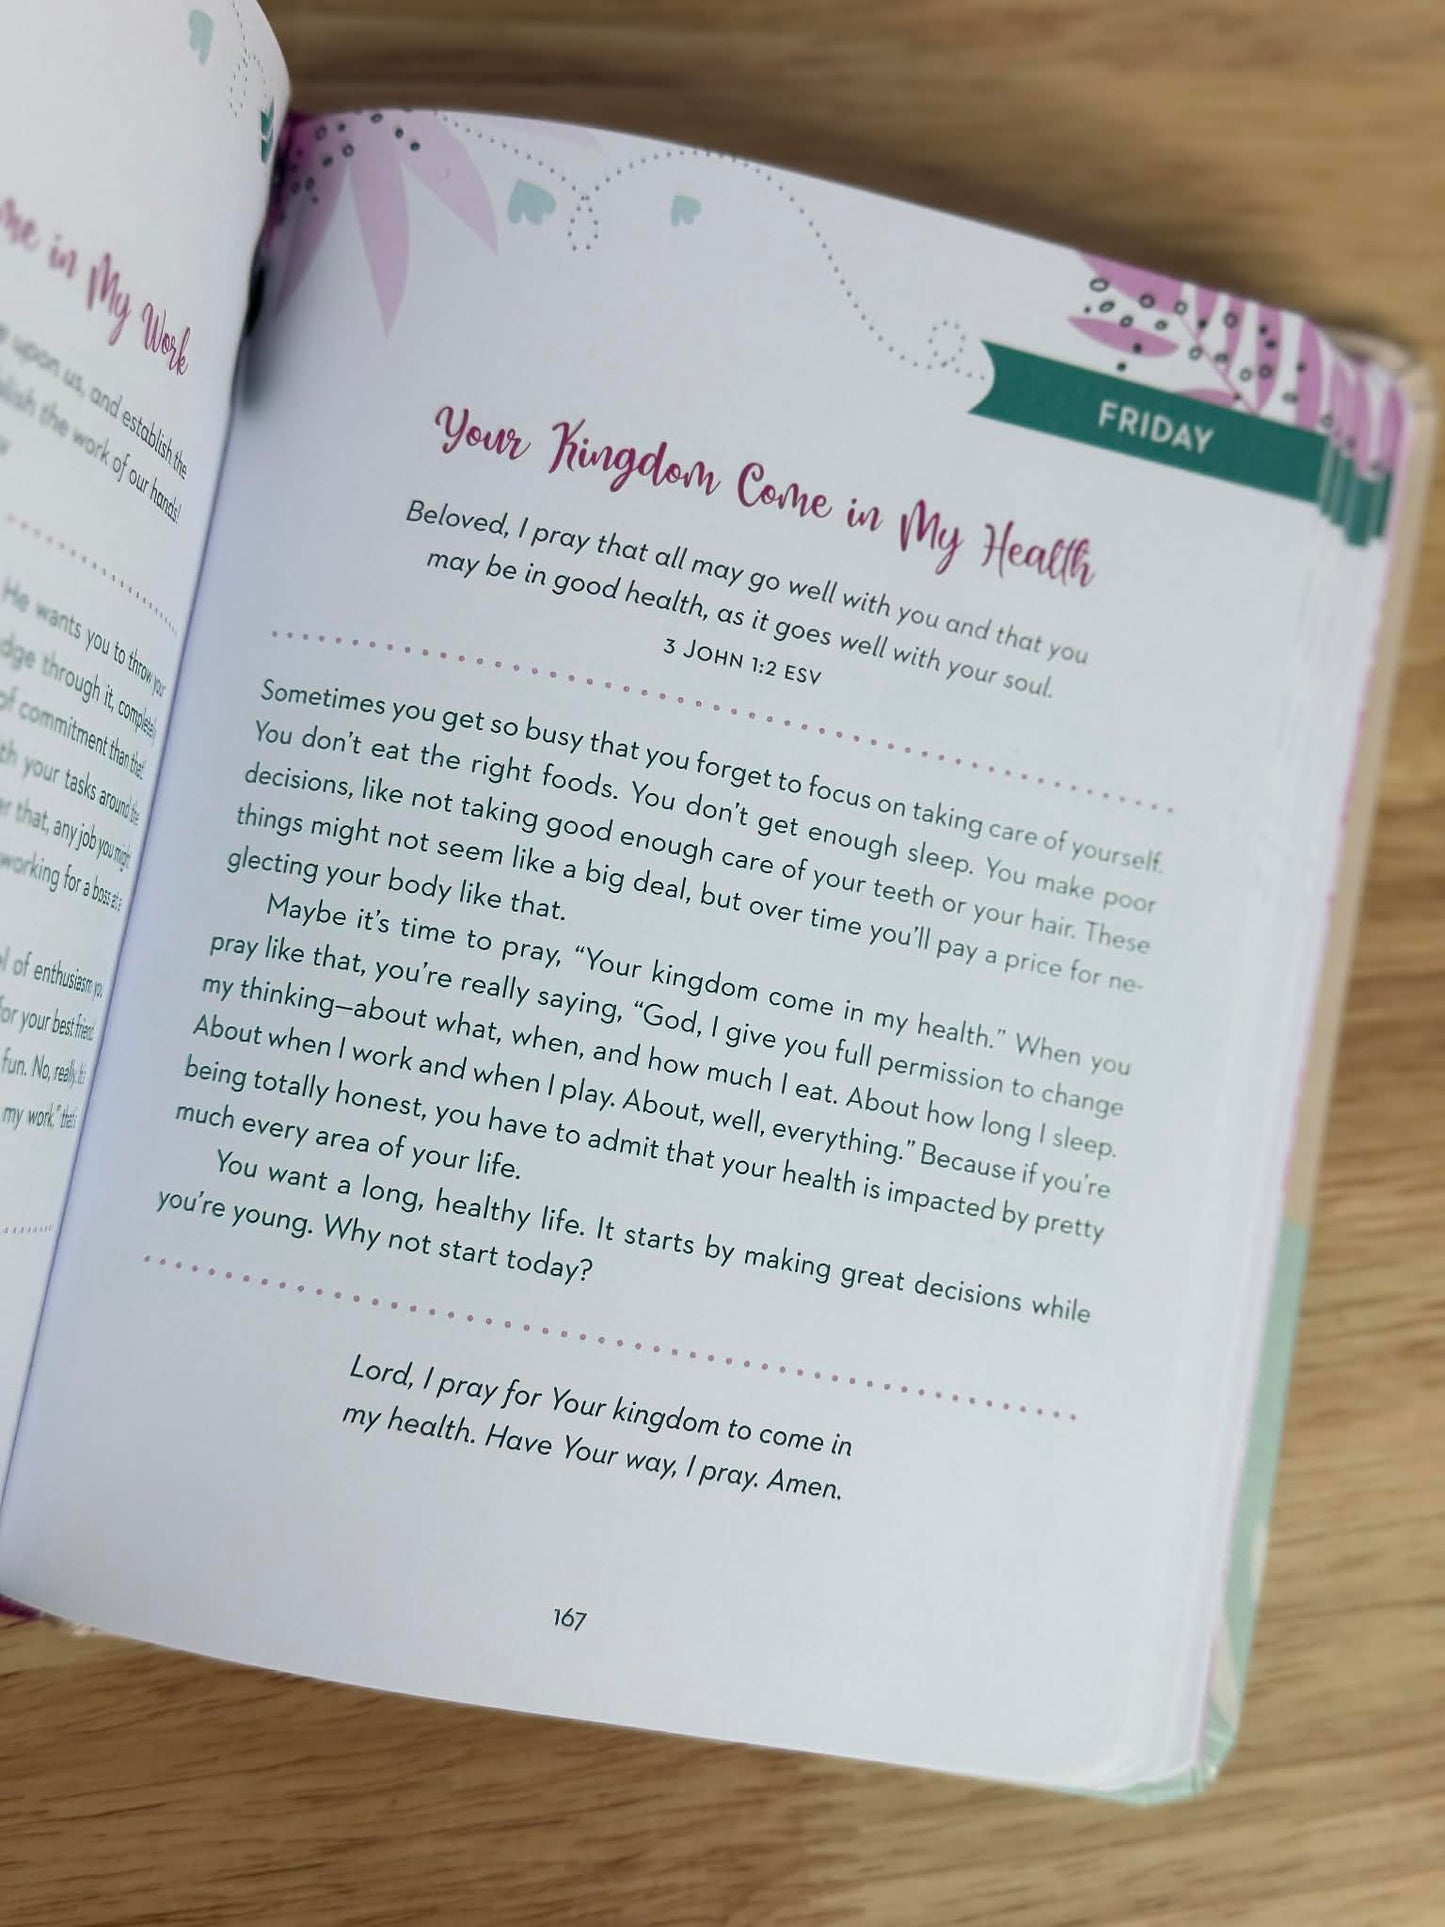 me in My Work
upon us, and establish the
the work of our hands!
He wants you to throw your
through it, completely
of commitment than that
your tasks around the
that, any job you might
working for a boss at a
of enthusiasm you
for your best friend
fun. No, really, it's
my work," that's
FRIDAY
Your Kingdom Come in My Health
Beloved, I pray that all may go well with you and that you
may be in good health, as it goes well with your soul.
3 JOHN 1:2 ESV
Sometimes you get so busy that you forget to focus on taking care of yourself.
You don't eat the right foods. You don't get enough sleep. You make poor
decisions, like not taking good enough care of your teeth or your hair. These
things might not seem like a big deal, but over time you'll pay a price for ne-
glecting your body like that.
Maybe it's time to pray, “Your kingdom come in my health.” When you
pray like that, you're really saying, “God, I give you full permission to change
my thinking—about what, when, and how much I eat. About how long I sleep.
About when I work and when I play. About, well, everything.” Because if you're
being totally honest, you have to admit that your health is impacted by pretty
much every area of your life.
You want a long, healthy life. It starts by making great decisions while
you're young. Why not start today?
Lord, I pray for Your kingdom to come in
my health. Have Your way, I pray. Amen.
167